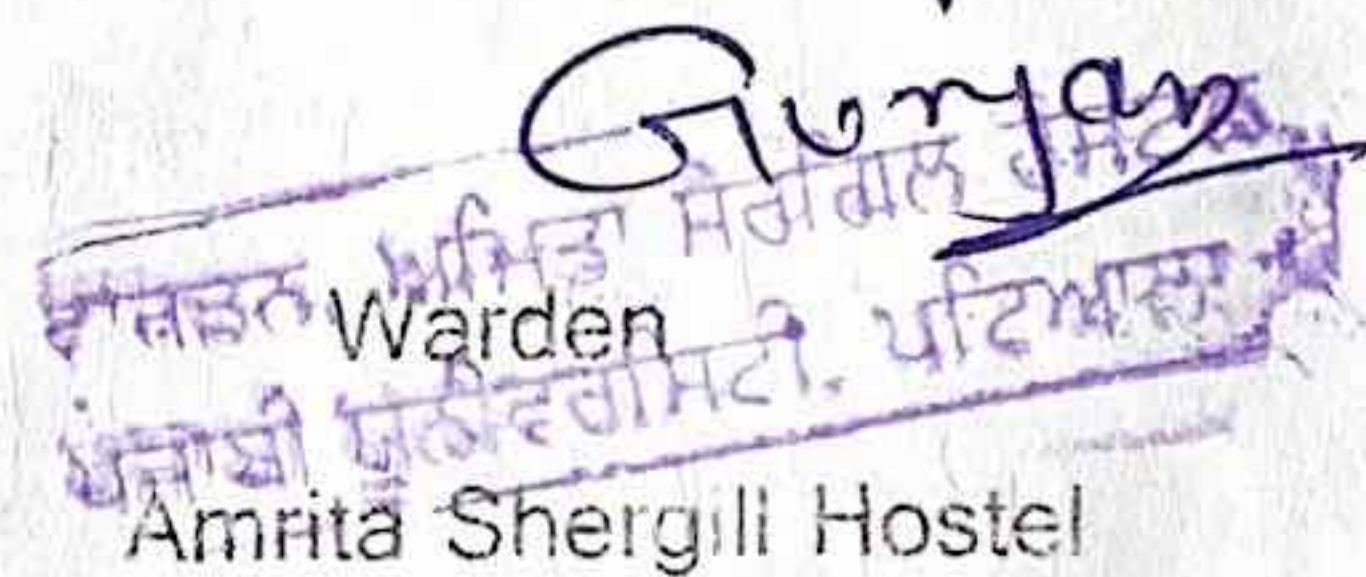 Gunjan
ਵਾਰਡਨ ਅਮ੍ਰਿਤਾ ਸ਼ੇਰਗਿੱਲ ਹੋਸਟਲ
Warden
ਪੰਜਾਬੀ ਯੂਨੀਵਰਸਿਟੀ, ਪਟਿਆਲਾ
Amrita Shergill Hostel